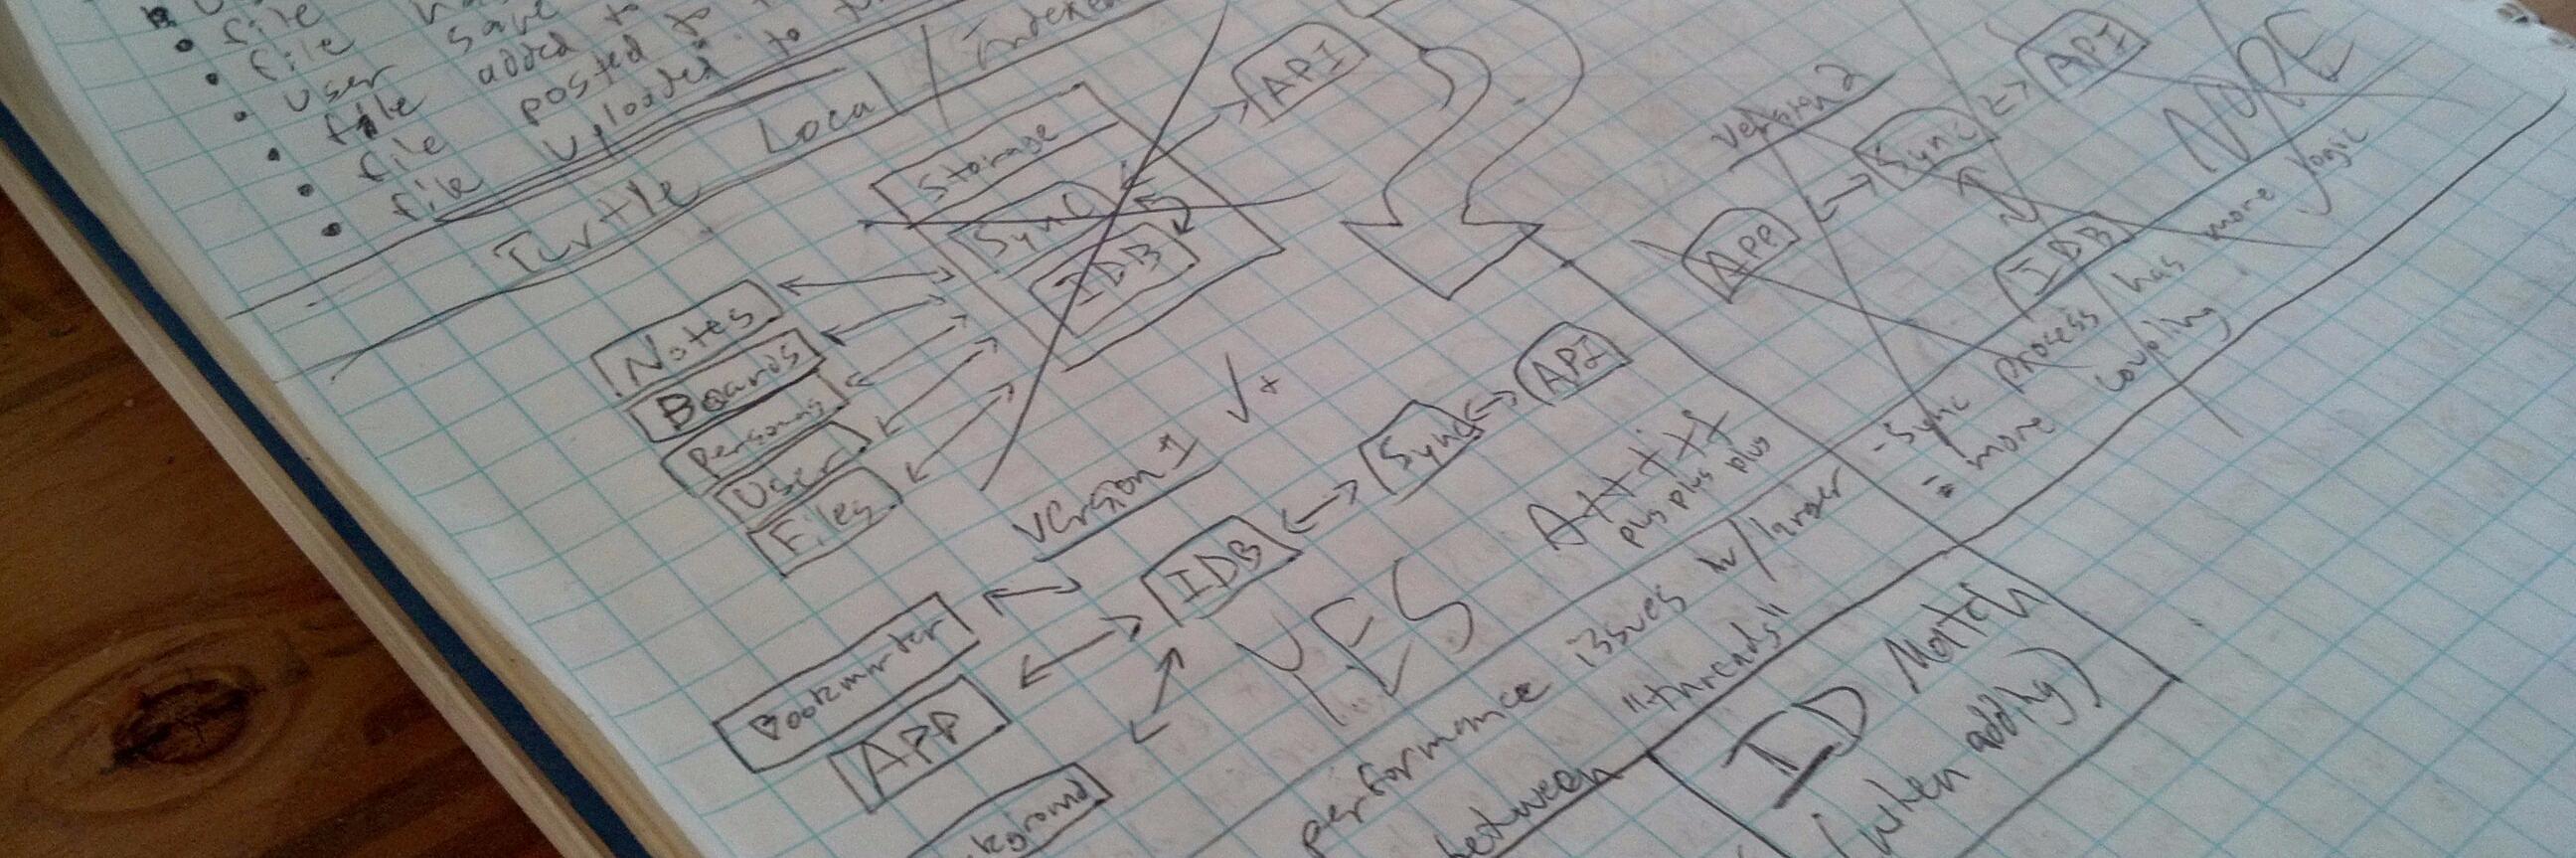 file
file
user save
file added to
file posted to
file uploaded to
Turtle Local / Indexed
Storage
Sync
IDB
API
Notes
Boards
Personas
User
Files
Version 2
APP
Sync
API
IDB
NOPE
- Sync process has more logic
= more coupling
Version 1 √+
IDB
Sync
API
Bookmarker
APP
kground
YES
A++++
plus plus plus
performance issues w/larger
between "threads"
ID Match
(when adding)